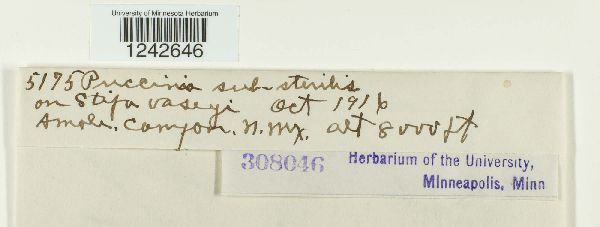 University of Minnesota Herbarium
1242646
5175 Puccinia substerilis
on Stipa vaseyi Oct 1916
Amole. Canyon. N. Mx. alt 8000 ft
308046
Herbarium of the University,
Minneapolis, Minn